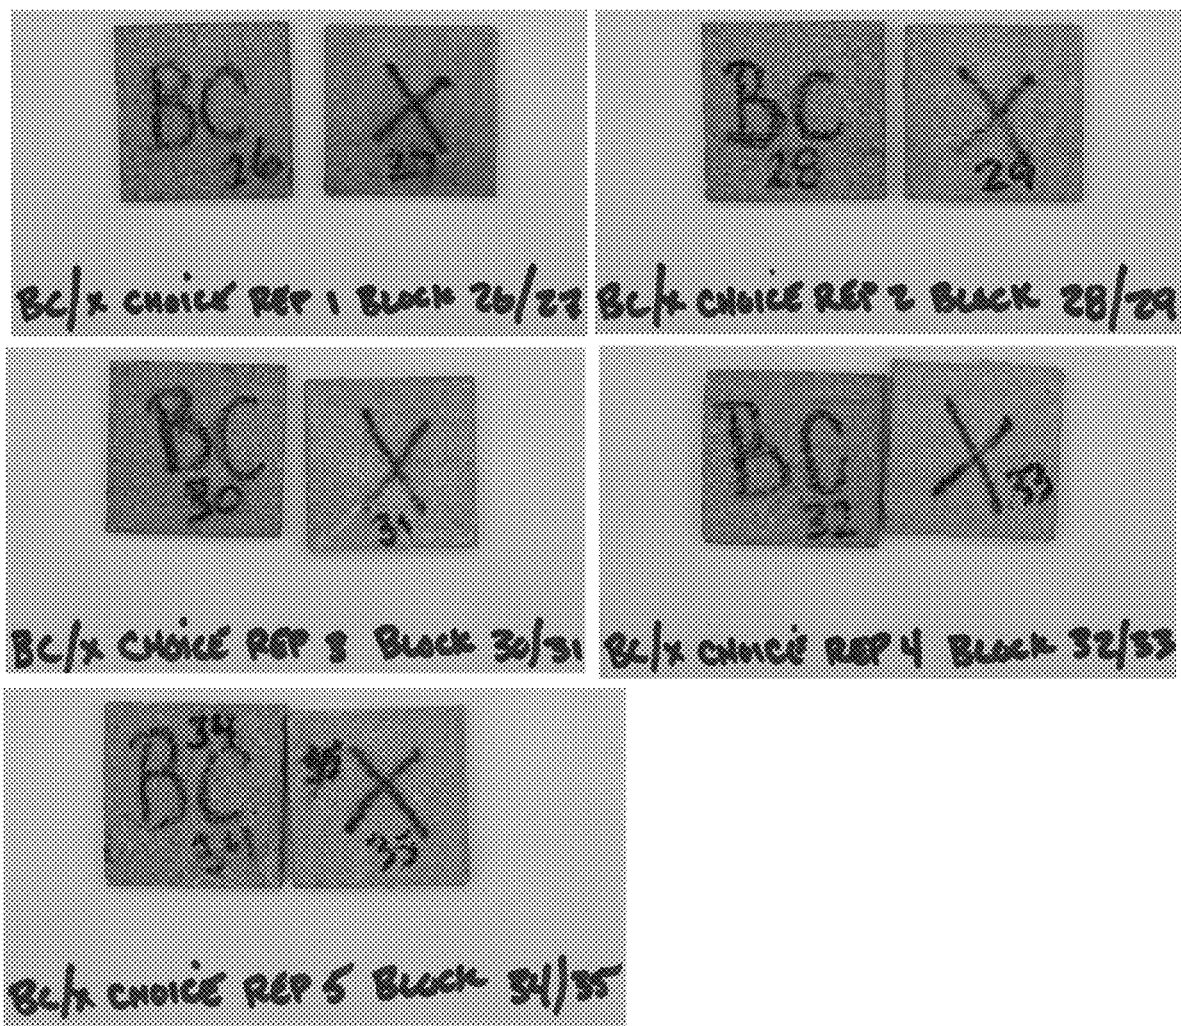 BC X
26 27
BC/X CHOICE REP 1 BLOCK 26/27
BC X
28 29
BC/X CHOICE REP 2 BLOCK 28/29
BC X
30 31
BC/X CHOICE REP 3 BLOCK 30/31
BC X
32 33
BC/X CHOICE REP 4 BLOCK 32/33
34
BC 35 X
34 35
BC/X CHOICE REP 5 BLOCK 34/35